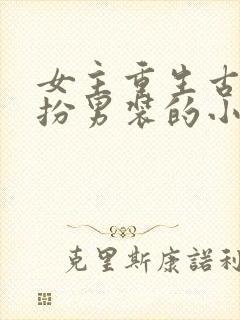 女主重生古
扮男装的小
克里斯康諾利